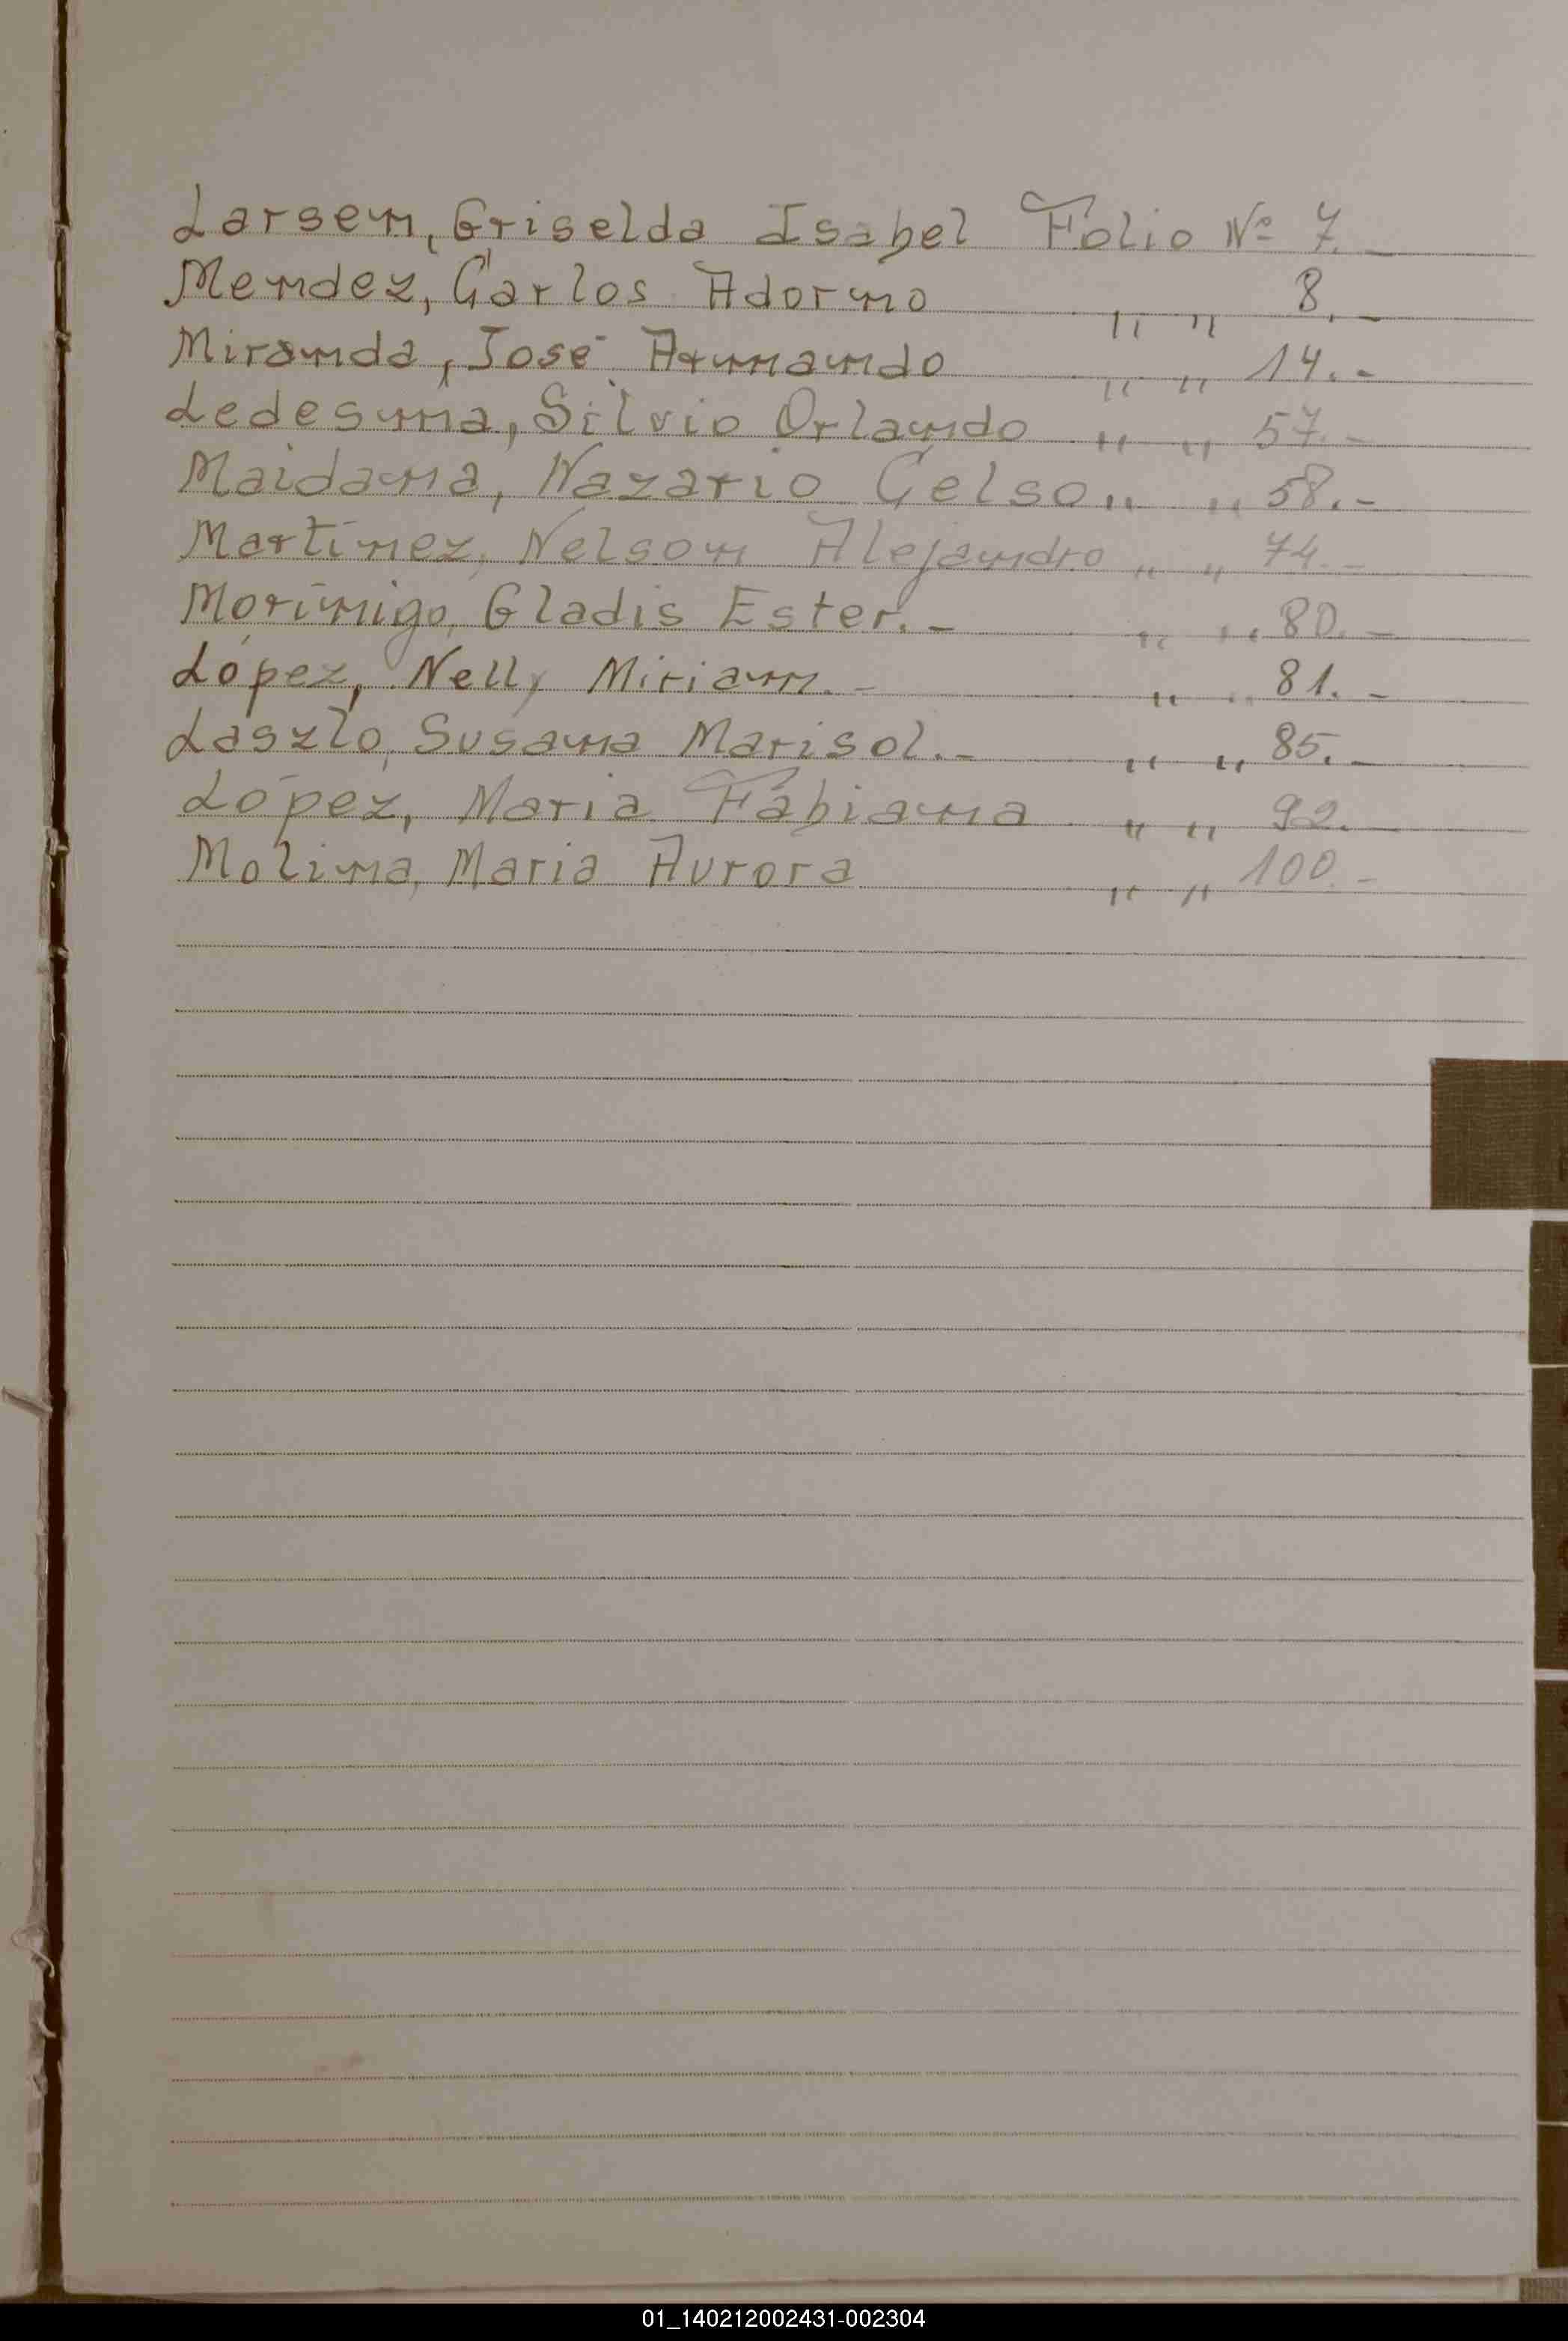 Larsen, Griselda Isabel Folio Nº 7.-
Mendez, Carlos Adorno " " 8.-
Miranda, José Armando " " 14.-
Ledesma, Silvio Orlando " " 57.-
Maidana, Nazario Celso " " 58.-
Martínez, Nelson Alejandro " " 74.-
Morínigo, Gladis Ester.- " " 80.-
López, Nelly Miriam.- " " 81.-
Laszlo, Susana Marisol.- " " 85.-
López, Maria Fabiana " " 92.-
Molina, Maria Aurora " " 100.-
01_140212002431-002304